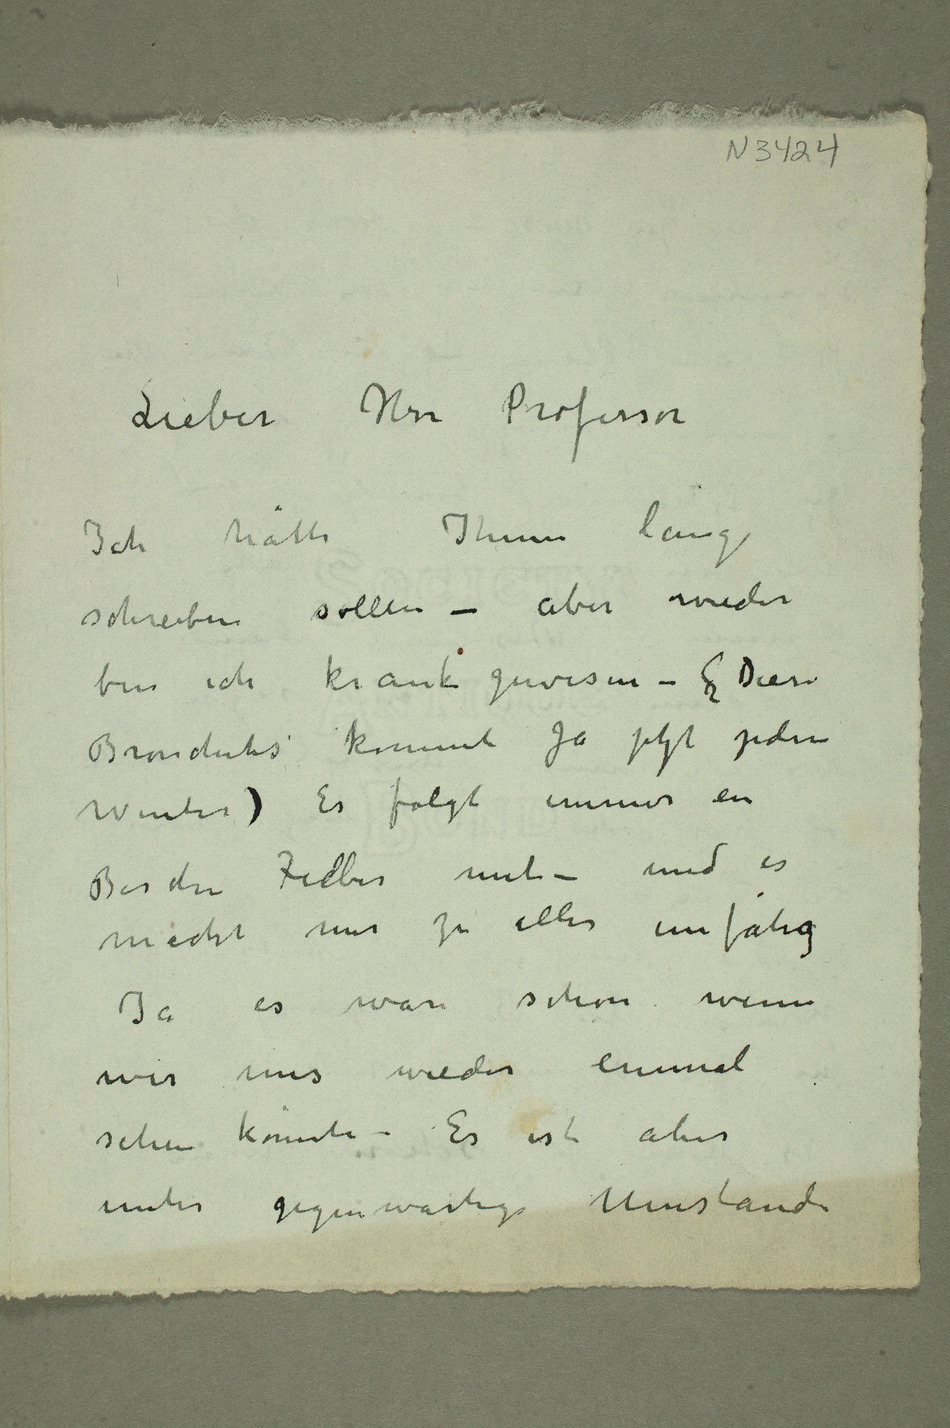 N3424
Lieber Herr Professor
Ich hätte Ihnen lange
schreiben sollen – aber wieder
bin ich krank gewesen – (Diese
Bronchitis kommt Ja jetzt jeden
Winter) Es folgt immer ein
mit – und es
macht mir zu alles unfähig
Ja es wäre schön wenn
wir uns wieder einmal
sehen könnte – Es ist aber
unter gegenwärtige Umstände